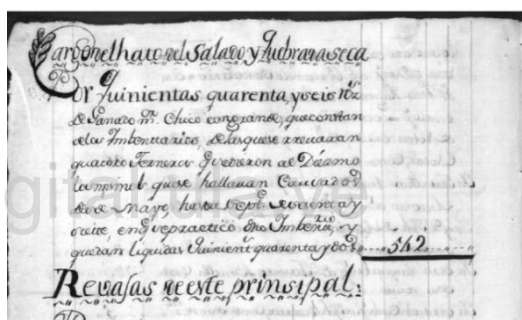 Cargo en el hato del Salado y Quebrada seca
Por quinientas quarenta, y seis rz
de Ganado mr. Chico con grande, que constan
de los Imbentarios, de las que se revaxan
quatro Terneros q. dieron al Diesmo
los mismos que se hallavan Causados
de de Mayo, hasta Sept. de sesenta y
siete, en q. se practicó dho Imbenrio, y
quedan liquidas Quinient. quarenta y dos 542
Revajas de este principal: